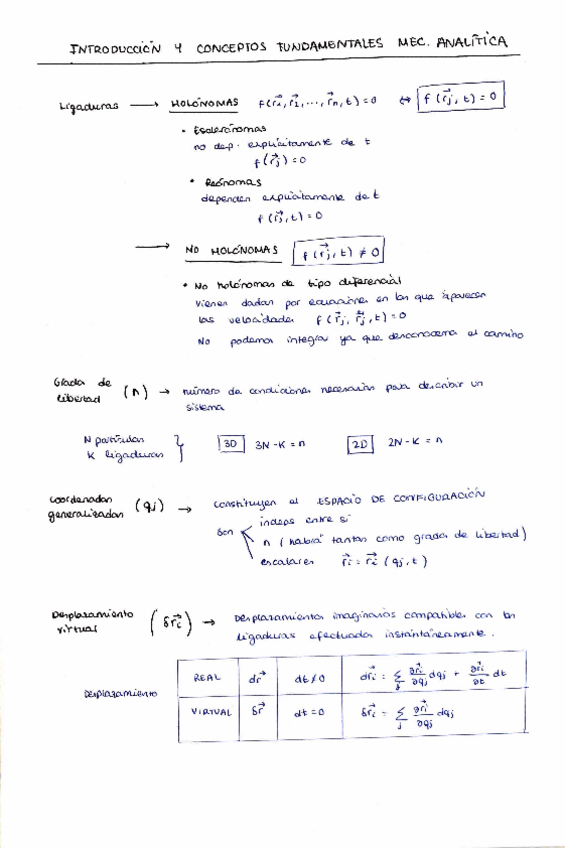 INTRODUCCIÓN Y CONCEPTOS FUNDAMENTALES MEC. ANALÍTICA
Ligaduras → HOLÓNOMAS f(r⃗₁, r⃗₂, ..., r⃗ₙ, t) = 0 ⇔ f(r⃗ⱼ, t) = 0
• Esclerónomas
no dep. explícitamente de t
f(r⃗ⱼ) = 0
• Reónomas
dependen explícitamente de t
f(r⃗ⱼ, t) = 0
→ NO HOLÓNOMAS f(r⃗ⱼ, t) ≠ 0
• No holónomas de tipo diferencial
Vienen dadas por ecuaciones en las que aparecen
las velocidades f(r⃗ⱼ, ṙ⃗ⱼ, t) = 0
No podemos integrar ya que desconocemos el camino
Grados de
libertad (n) → número de condiciones necesarias para describir un
sistema
N partículas
K ligaduras } 3D 3N - K = n 2D 2N - K = n
Coordenadas
generalizadas (qj) → Constituyen el ESPACIO DE CONFIGURACIÓN
Son
indeps entre sí
n (habrá tantas como grados de libertad)
escalares r⃗ᵢ = r⃗ᵢ (qj, t)
Desplazamiento
virtual (δr⃗ᵢ) → Desplazamientos imaginarios compatibles con las
ligaduras efectuados instantáneamente.
Desplazamiento
REAL dr⃗ dt ≠ 0 dr⃗ᵢ = Σⱼ ∂r⃗ᵢ/∂qj dqj + ∂r⃗ᵢ/∂t dt
VIRTUAL δr⃗ dt = 0 δr⃗ᵢ = Σⱼ ∂r⃗ᵢ/∂qj dqj